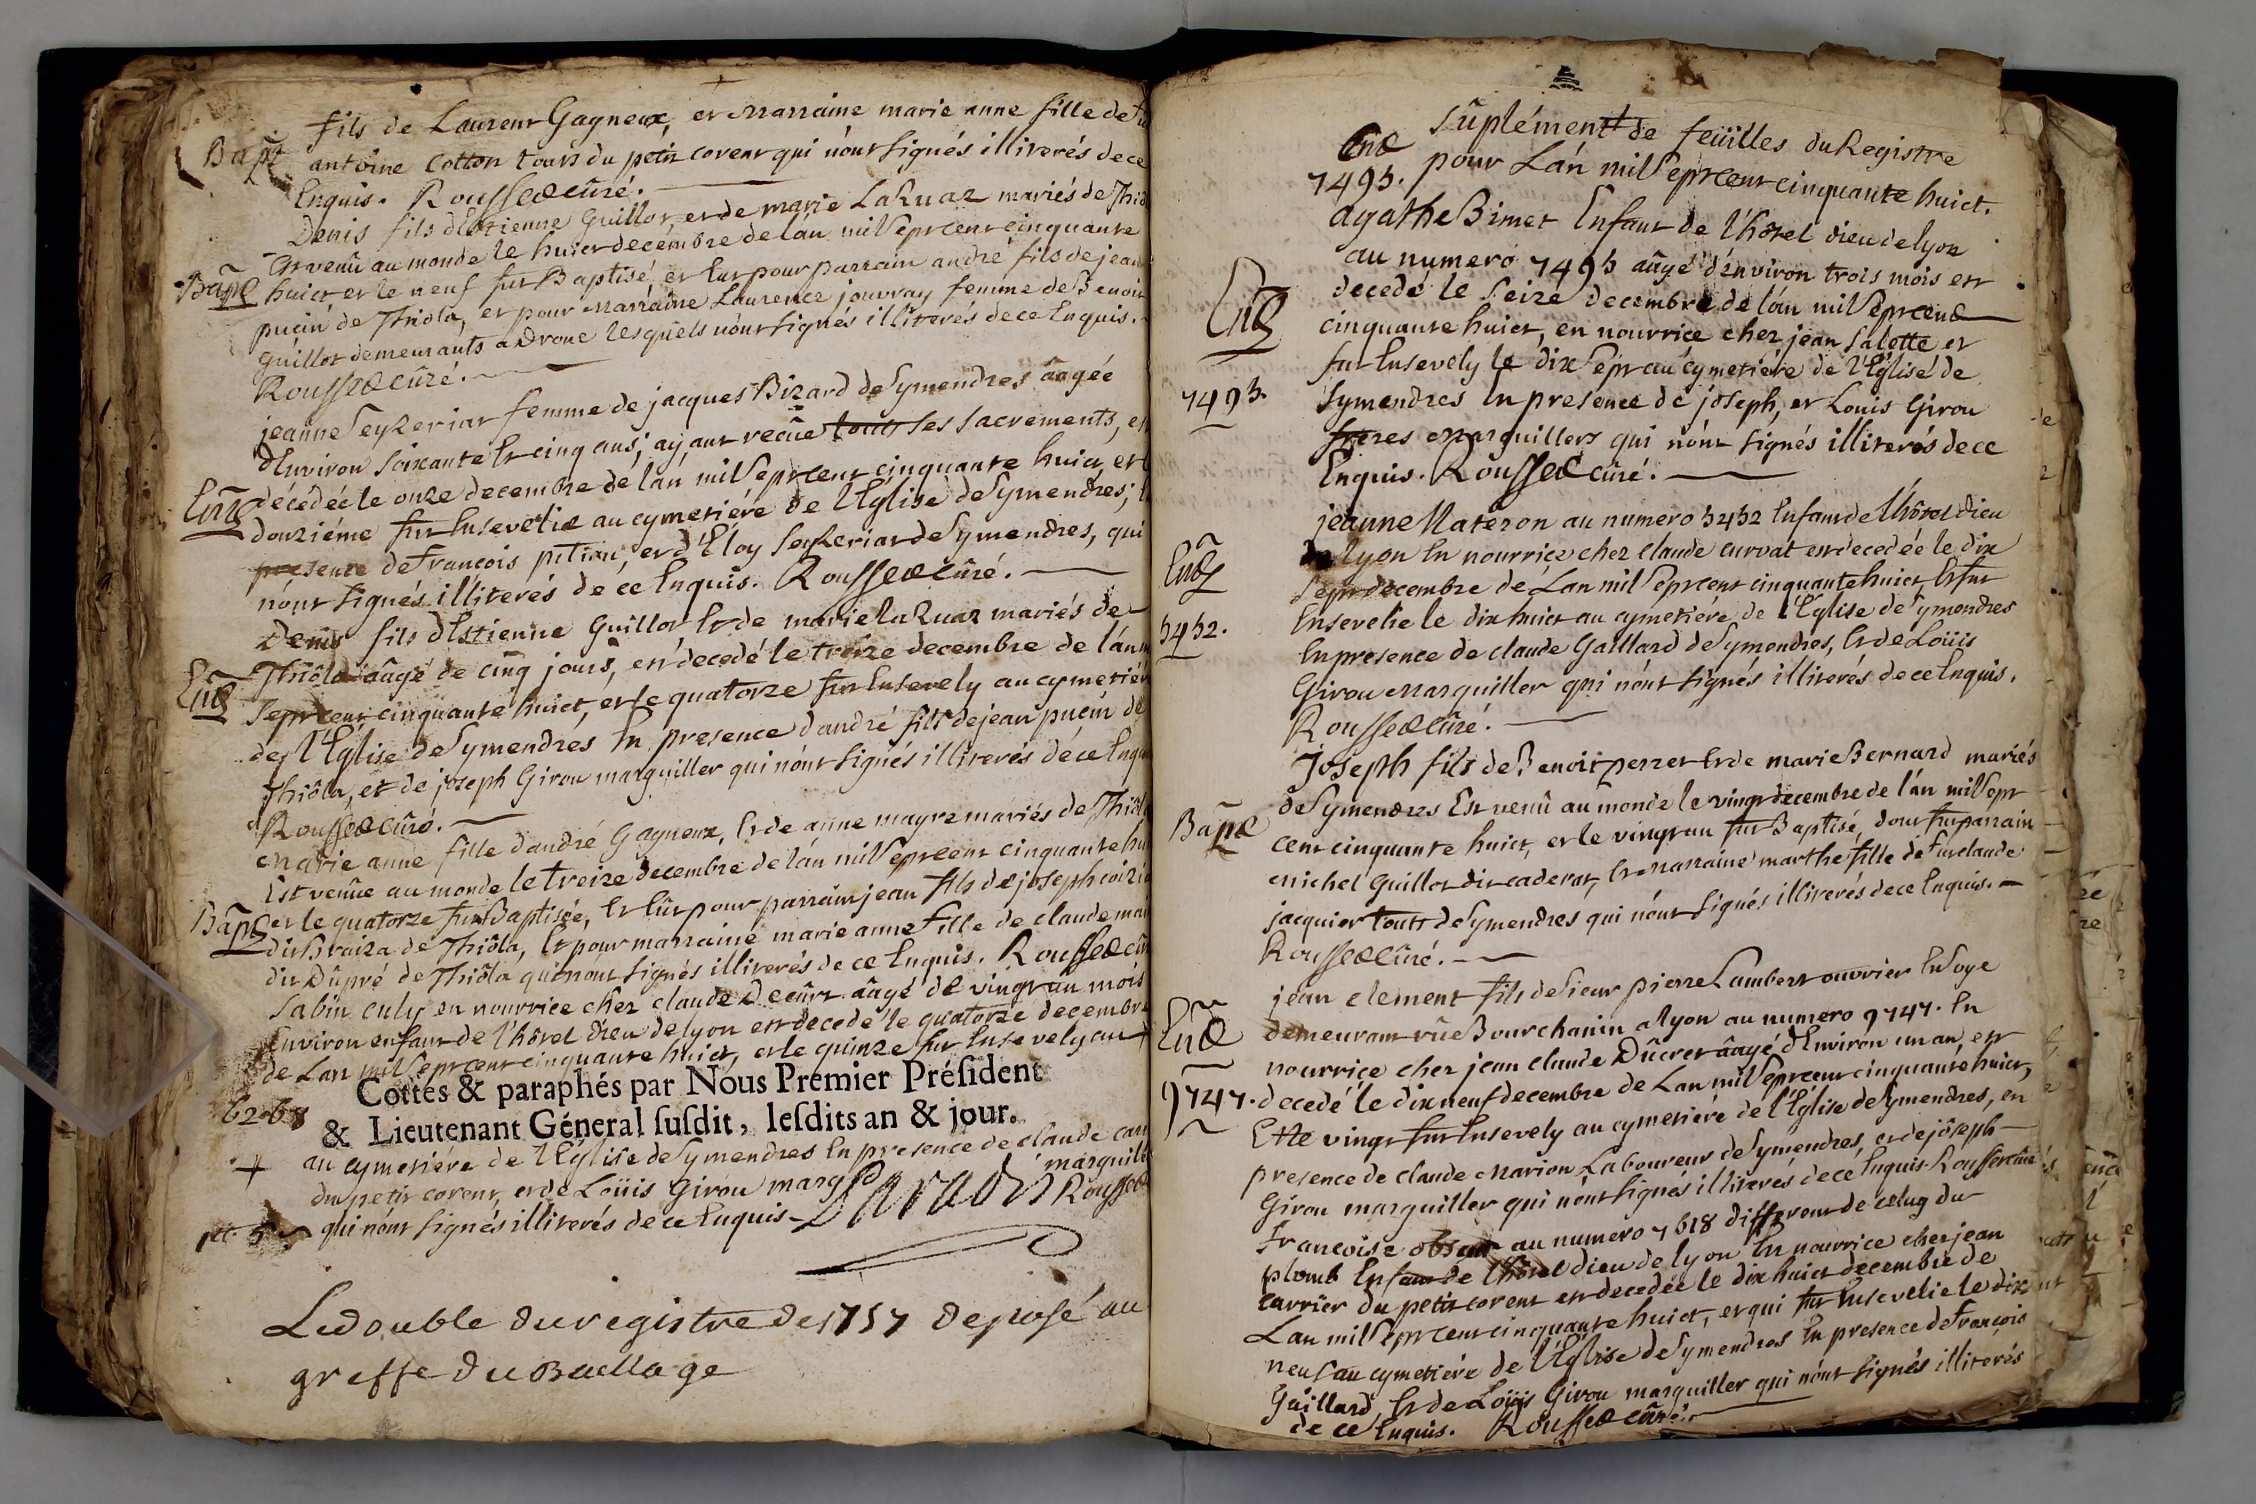 fils de Laurent Gagneux, et marraine marie anne fille de
Bapt
antoine Cotton touts du petit corent qui n'ont signés illiterés de ce
Enquis. Rousset curé.
Denis fils d'Estienne Guillot et de marie LaRuaz mariés de Thiô
Est venû au monde le huict decémbre de l'án mil Sept cent cinquante
Bapt
huict, et le neuf fut Baptisé, et Eut pour parrain andré fils de jean
pucin de Thiola, et pour marraine Laurence jouvray femme de Benoit
Guillot demeurants a Drone lesquels n'ont signés illiterés de ce Enquis.
Rousset curé.
jeanne Seyzeriat femme de jacques Bizard de Symendres âagée
d'Environ soixante Et cinq ans, ayant recûe touts ses sacrements, est
Ent
décédée le onze decembre de l'án mil Sept cent cinquante huict, et
douziéme fut Ensevelie au cymetiére de l'Église de Symendres;
presence de Francois pitiou, et d'Éloy Seyzeriat de Symendres, qui
n'ont signés illiterés de ce Enquis. Rousset curé.
Denis fils d'Estienne Guillot Et de marie LaRuaz mariés de
Ent
Thiôla âagé de cinq jours, est decedé le treize decembre de l'án
Sept cent cinquante huict, et le quatorze fut Ensevely au cymetiére
de l'Église de Symendres En presence d'andré fils de jean pucin de
Thiôla, et de joseph Girou marguiller qui n'ont signés illiterés de ce Enquis
Rousset curé.
marie anne fille d'andré Gagneux, Et de anne mayre mariés de Thiôla
Est venûe au monde le treize decembre de l'án mil Sept cent cinquante hu
Bapt
et le quatorze fut Baptisée, Et Eut pour parrain jean fils de joseph
dit Braiza de Thiôla, Et pour marraine marie anne fille de claude
dit Dûpré de Thiôla qui n'ont signés illiterés de ce Enquis. Rousset cur
Sabin culy en nourrice chez claude Decûrt âagé de vingt un mois
Environ enfant de l'hôtel Dieu de lyon est decedé le quatorze decembre
de Lan mil Sept cent cinquante huict, et le quinze fut Ensevely au +
Cottés & paraphés par Nous Premier Préſident
& Lieutenant Géneral ſuſdit, leſdits an & jour.
+
au cymetiére de l'Église de Symendres En presence de claude
du petit corent, et de Loüis Girou marg marguill
qui n'ont signés illiterés de ce Enquis Rousset
Le double du registre de 1757 deposé au
greffe du Baillage
Suplément de feüilles du Registre
Ent
7493. pour L'án mil Sept cent cinquante huict.
agathe Bimet Enfant de l'hôtel dieu de lyon
au numero 7493 âagé d'environ trois mois est
decedé le seize decembre de l'án mil Sept cent
Ent
cinquante huict, en nourrice chez jean Salette et
fut Ensevely le dix Sept au cymetiére de l'Église de
7493.
Symendres En presence de joseph, et Louis Girou
freres marguillers qui n'ont signés illiterés de ce
Enquis. Rousset curé.
jeanne Materon au numero 5452 Enfant de l'hôtel Dieu
de lyon En nourrice chez Claude curvat est decedée le dix
Ent
Sept decembre de Lan mil Sept cent cinquante huict Et fut
Ensevelie le dix huict au cymetiére de l'Église de Symendres
5452.
En presence de claude Gaillard de Symendres, Et de Loüis
Girou marguiller qui n'ont signés illiterés de ce Enquis.
Rousset curé.
Joseph fils de Benoit perret Et de marie Bernard mariés
de Symendres Est venû au monde le vingt decembre de l'án mil Sept
Bapt
cent cinquante huict, et le vingt un fut Baptisé, dont fut parrain
michel Guillot dit caderat, Et marraine marthe fille de Fut claude
jacquier touts de Symendres qui n'ont signés illiterés de ce Enquis.
Rousset curé.
jean clement fils de Sieur pierre Lambert ouvrier En Soye
Ent
demeurant rûe Bourchanin a lyon au numero 9747. En
nourrice chez jean claude Dûcret âagé d'Environ un an, est
9747.
decedé le dix neuf decembre de Lan mil Sept cent cinquante huict,
Et le vingt fut Ensevely au cymetiére de l'Église de Symendres, en
presence de claude marion Laboureur de Symendres, et de jôseph
Girou marguiller qui n'ont signés illiterés de ce Enquis. Rousset curé
Francoise au numero 7618 different de celuy du
plomb Enfant de l'hôtel dieu de lyon En nourrice chez jean
carrier du petit corent est decedée le dix huict decembre de
Lan mil Sept cent cinquante huict, et qui fut Ensevelie le dix
neuf au cymetiére de l'Église de Symendres En presence de François
Gaillard, Et de Loüis Girou marguiller qui n'ont signés illiterés
de ce Enquis. Rousset curé.